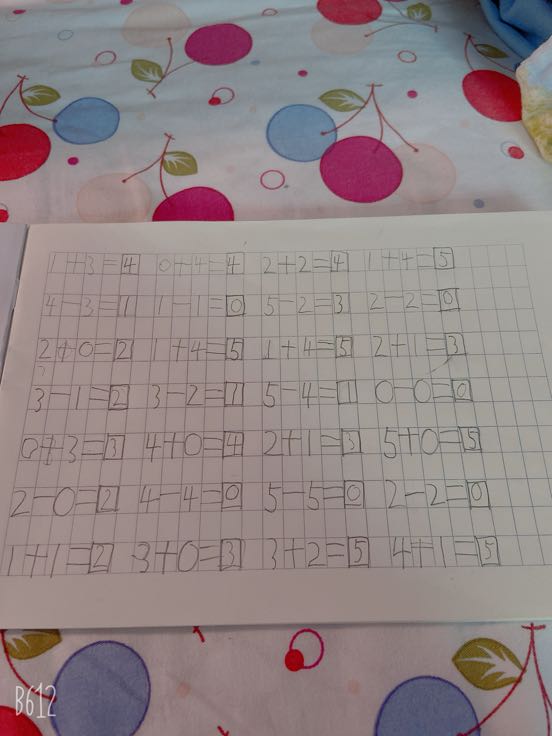 1+3=4 0+4=4 2+2=4 1+4=5
4-3=1 1-1=0 5-2=3 2-2=0
2+0=2 1+4=5 1+4=5 2+1=3
3-1=2 3-2=1 5-4=1 0-0=0
0+3=3 4+0=4 2+1=3 5+0=5
2-0=2 4-4=0 5-5=0 2-2=0
1+1=2 3+0=3 3+2=5 4+1=5
B612